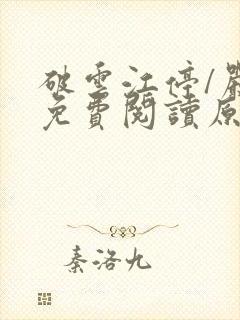 破雲江停/嚴
免費閱讀原
秦洛九